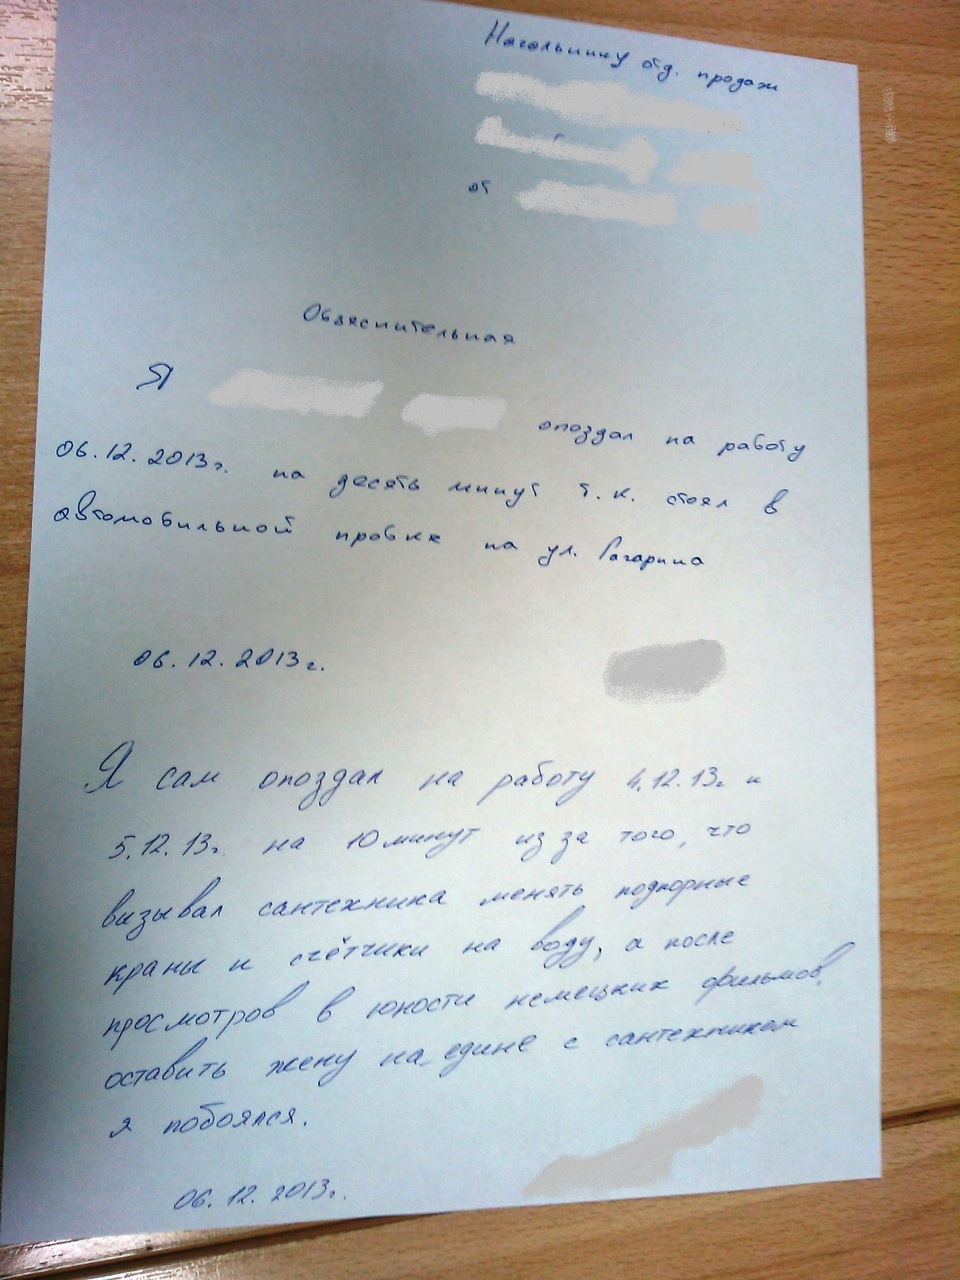 Начальнику отд. продаж
от
Объяснительная
Я опоздал на работу
06.12.2013г. на десять минут т.к. стоял в
автомобильной пробке на ул. Гагарина
06.12.2013г.
Я сам опоздал на работу 4.12.13г и
5.12.13г на 10 минут из за того, что
вызывал сантехника менять подпорные
краны и счётчики на воду, а после
просмотров в юности немецких фильмов,
оставить жену на едине с сантехником
я побоялся.
06.12.2013г.